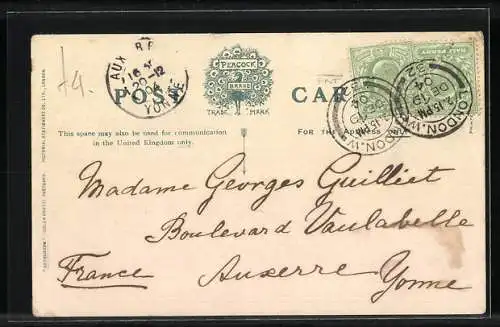 A4.
AUX
16
20-12
04
YONNE
PO
PEACOCK
BRAND
TRADE MARK
CAR
HALF PENNY
LONDON. W
7.15 PM
DE 19
04
This space may also be used for communication
in the United Kingdom only.
FOR THE ADDRESS ONLY
Madame Georges Guilliet
Boulevard Vaulabelle
France Auxerre Yonne